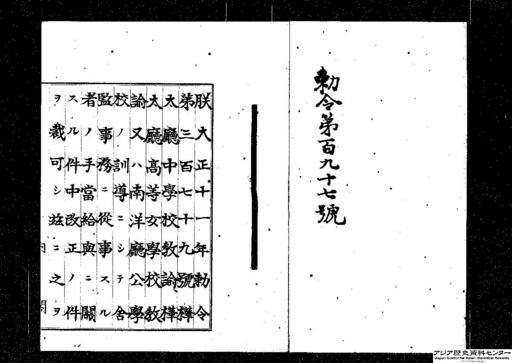 勅令第百九十七號
朕大正十一年勅令
第三百七十九號樺
太廳中學校教諭樺
太廳高等女學校教
諭又ハ南洋廳公學
校ノ訓導ニシテ舍
監事務ニ從事スル
者ノ手當給與ニ關
スル件中改正ノ件
ヲ裁可シ玆ニ之ヲ
アジア歴史資料センター
Japan Center for Asian Historical Records